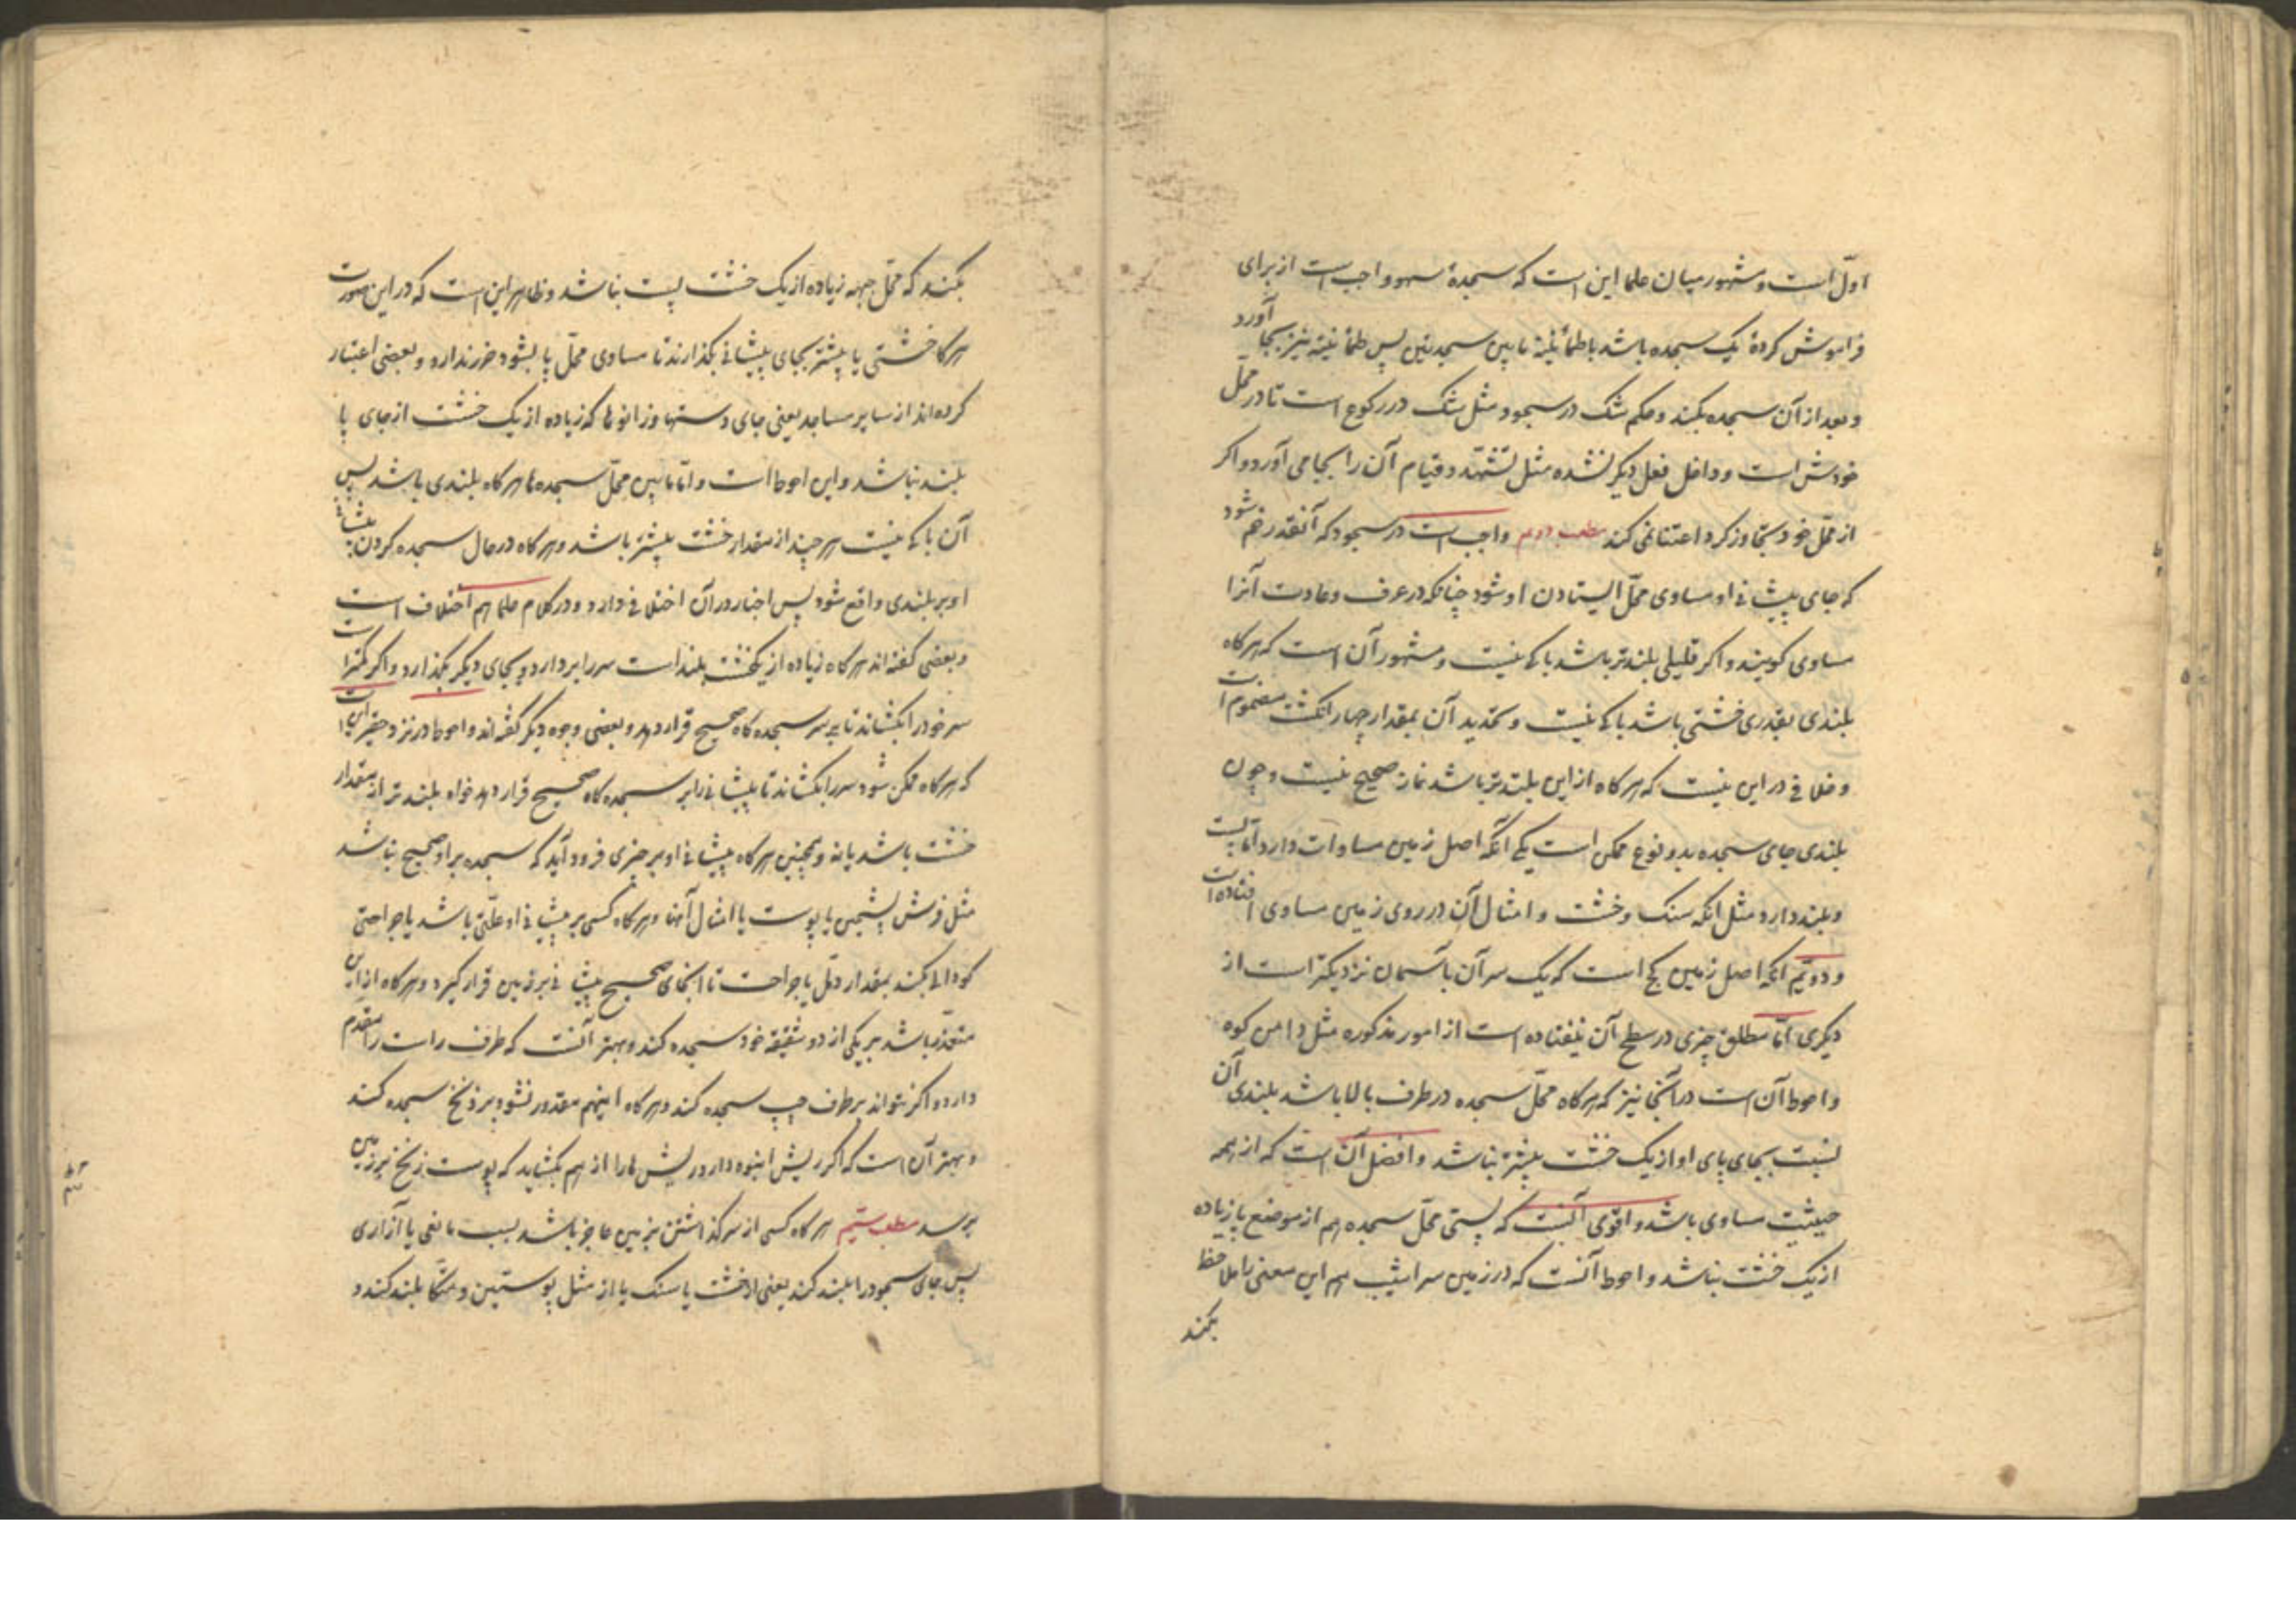 اول است و مشهور میان علما این است که سجدهٔ سهو واجب است از برای
فراموش کردهٔ یک سجده باشد یا طمأنینه مابین سجدتین پس طمأنینه نیز بجا آورد
و بعد از آن سجده بکند و حکم شک در سجود مثل شک در رکوع است تا در محلّ
خودش است و داخل فعل دیگر نشده مثل تشهّد و قیام آن را بجا می آورد و اکر
از محلّ خود تجاوز کرد اعتنا نمی کند مطلب دویم واجب است در سجود که آنقدر خم شود
که جای پیشانی او مساوی محلّ ایستادن او شود چنانکه در عرف و عادت آنرا
مساوی کویند و اکر قلیلی بلندتر باشد باکی نیست و مشهور آن است که هرکاه
بلندی بقدری خشتی باشد باکی نیست و تحدید آن بمقدار چهار انکشت مضموم است
و خلافی در این نیست که هرکاه از این بلندتر باشد نماز صحیح نیست و چون
بلندی جای سجده بدو نوع ممکن است یکی آنکه اصل زمین مساوات دارد امّا پست
و بلند دارد مثل انکه سنک و خشت و امثال آن در روی زمین مساوی افتاده است
و دویّم انکه اصل زمین کج است که یک سر آن بآسمان نزدیکتر است از
دیکری امّا مطلق چیزی در سطح آن نیفتاده است از امور مذکوره مثل دامن کوه
و احوط آن است در آنجا نیز که هرکاه محلّ سجده در طرف بالا باشد بلندی آن
نسبت بجای پای او از یک خشت بیشتر نباشد و افضل آن است که از همه
حیثیت مساوی باشد و اقوی آنست که پستی محلّ سجده هم از موضع پا زیاده
از یک خشت نباشد و احوط آنست که در زمین سراشیب هم این معنی را ملاحظه
بکند
بکند که محلّ جبهه زیاده از یک خشت پست نباشد و ظاهر این است که در این صورت
هرکاه خشتی یا بیشتر بجای پیشانی بکذارند تا مساوی محلّ پا بشود ضرر ندارد و بعضی اعتبار
کرده اند از سایر مساجد یعنی جای دستها و زانوها که زیاده از یک خشت از جای پا
بلند نباشد و این احوط است و امّا مابین محلّ سجده ها هرکاه بلندی باشد پس
آن باکی نیست هر چند از مقدار خشت بیشتر باشد و هرکاه در حال سجده کردن پیشانی
او بر بلندی واقع شود پس اخبار در آن اختلافی دارد و در کلام علما هم اختلاف است
و بعضی کفته اند هرکاه زیاده از یکخشت بلند است سر را بردارد و بجای دیکر بکذارد و اکر کمتر است
سر خود را بکشاند تا بر سر سجده کاه صحیح قرار دهد و بعضی وجوه دیکر کفته اند و احوط در نزد حقیر این است
که هرکاه ممکن شود سر را بکشاند تا پیشانی را بر سجده کاه صحیح قرار دهد خواه بلندتر از مقدار
خشت باشد یا نه و همچنین هرکاه پیشانی او بر چیزی فرود آید که سجده بر او صحیح نباشد
مثل فرش پشمین یا پوست یا امثال آنها و هرکاه کسی بر پیشانی او علّتی باشد یا جراحتی
کودالی بکند بمقدار دمّل یا جراحت تا انجای صحیح پیشانی بر زمین قرار کیرد و هرکاه از این
متعذّر باشد بر یکی از دو شقیقه خود سجده کند و بهتر آنست که طرف راست را مقدّم
دارد و اکر نتواند بر طرف چپ سجده کند و هرکاه اینهم مقدور نشود بر ذنخ سجده کند
و بهتر آن است که اکر ریش انبوه دارد ریش ها را از هم بکشاید که پوست زنخ بر زمین
برسد مطلب سیّم هرکاه کسی از سر کذاشتن بزمین عاجز باشد بسبب مانعی یا آزاری
پس جای سجود را بلند کند یعنی از خشت یا سنک یا از مثل پوستین و متّکا بلند کند و